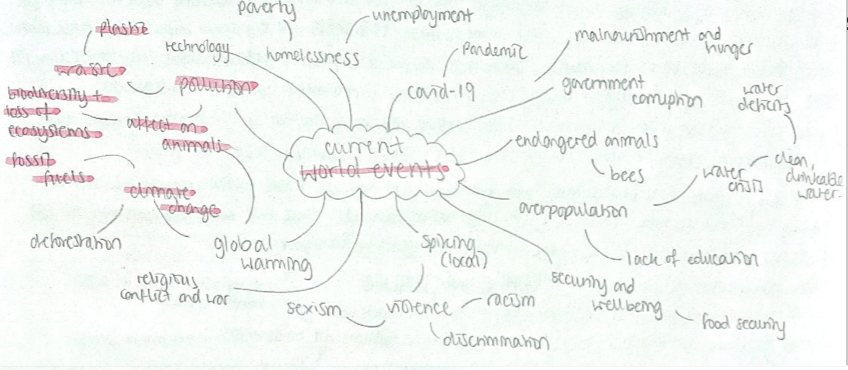 poverty
unemployment
plastic
technology
homelessness
Pandemic
malnourishment and
hunger
waste
pollution
covid-19
government
corruption
water
deficits
biodiversity +
loss of
ecosystems
affect on
animals
current
world events
endangered animals
bees
clean,
drinkable
water
water
crisis
fossil
fuels
climate
change
overpopulation
deforestation
global
warming
spiking
(local)
lack of education
religious
conflict and war
security and
wellbeing
sexism
violence
racism
food security
discrimination